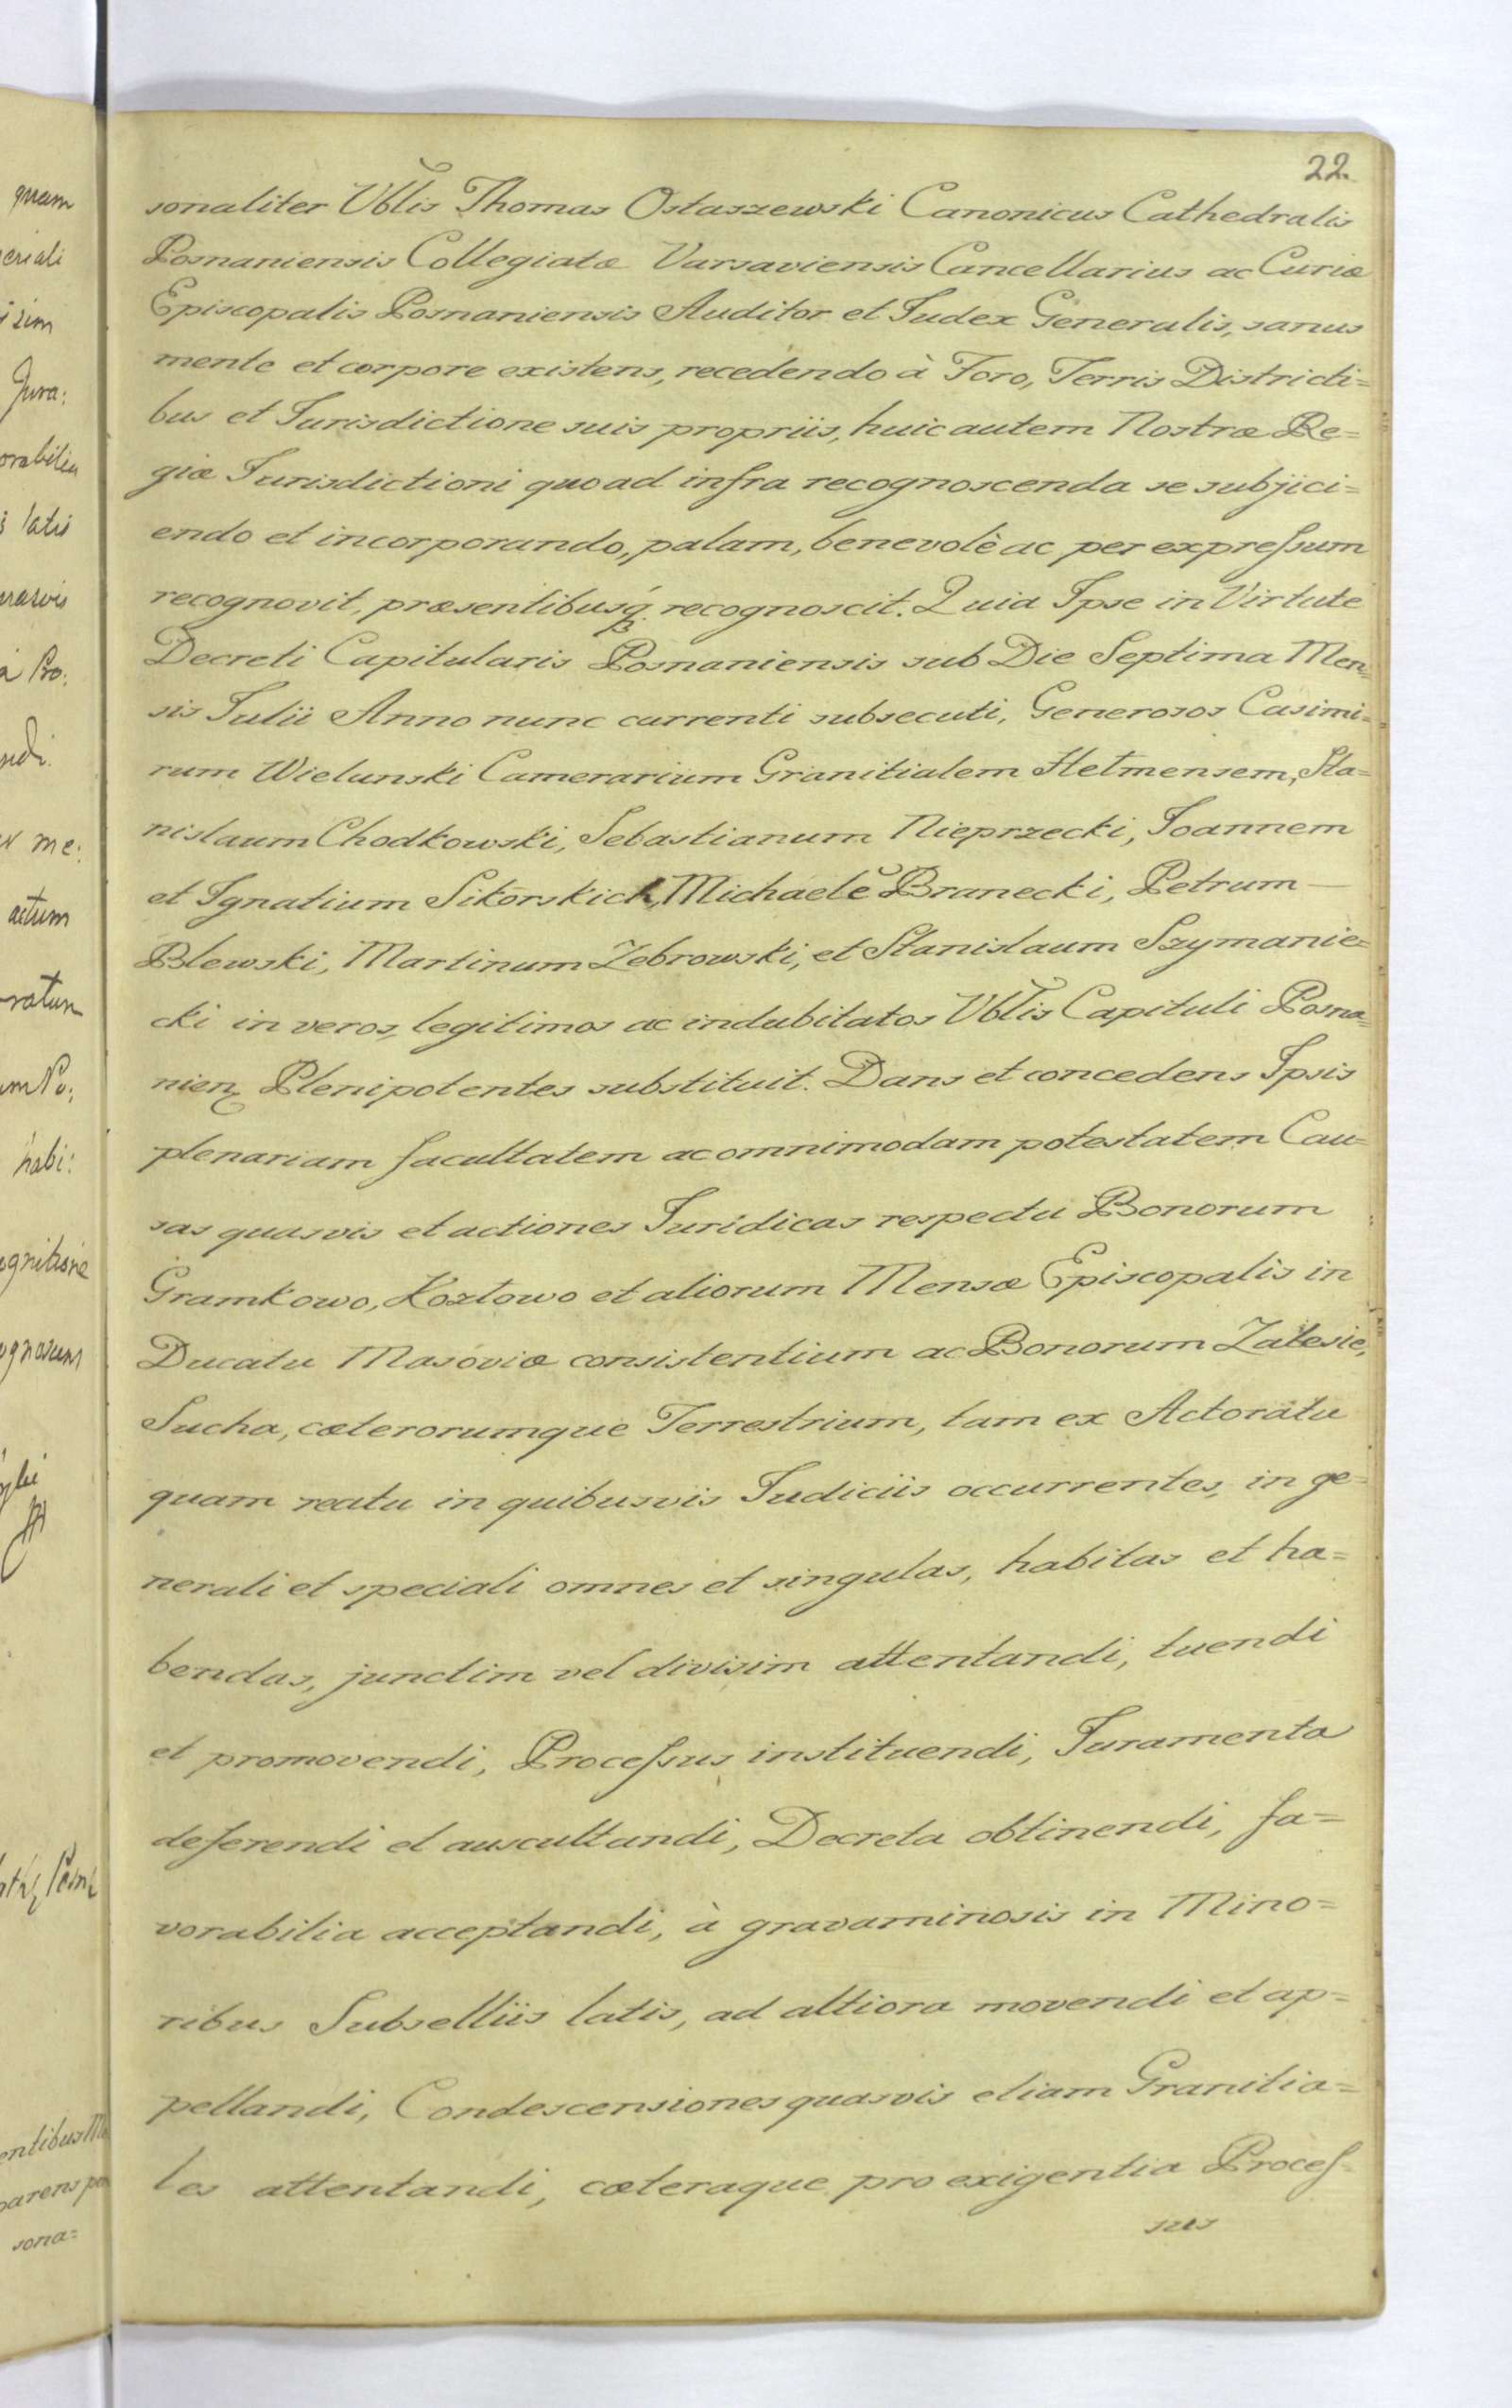 22.
sonaliter Vblis Thomas Ostaszewski Canonicus Cathedralis
Posnaniensis Collegiatæ Varsaviensis Cancellarius ac Curiæ
Episcopalis Posnaniensis Auditor et Judex Generalis, sanus
mente et corpore existens, recedendo à Foro, Terris Districti=
bus et Jurisdictione suis propriis, huic autem Nostræ Re=
giæ Jurisdictioni quoad infra recognoscenda se subjici=
endo et incorporando, palam, benevolè ac per expreſsum
recognovit, præsentibusq; recognoscit. Quia Ipse in Virtute
Decreti Capitularis Posnaniensis sub Die Septima Men=
sis Julii Anno nunc currenti subsecuti, Generosos Casimi=
rum Wielunski Camerarium Granitialem Helmensem, Sta=
nislaum Chodkowski, Sebastianum Nieprzecki, Joannem
et Ignatium Sikorskich, Michaelē Branecki, Petrum —
Blewski, Martinum Zebrowski, et Stanislaum Szymanie=
cki in veros, legitimos ac indubitatos Vblis Capituli Posna=
nien Plenipotentes substituit. Dans et concedens Ipsis
plenariam facultatem ac omnimodam potestatem Cau=
sas quasvis et actiones Juridicas respectu Bonorum
Gramkowo, Kozłowo et aliorum Mensæ Episcopalis in
Ducatu Masoviæ consistentium ac Bonorum Zalesie,
Sucha, cæterorumque Terrestrium, tam ex Actoratu
quam reatu in quibusvis Judiciis occurrentes, in ge=
nerali et speciali omnes et singulas, habitas et ha=
bendas, junctim vel divisim attentandi, tuendi
et promovendi, Proceſsus instituendi, Juramenta
deferendi et auscultandi, Decreta obtinendi, fa=
vorabilia acceptandi, à gravaminosis in Mino=
ribus Subselliis latis, ad altiora movendi et ap=
pellandi, Condescensiones quasvis etiam Granitia=
les attentandi, cæteraque pro exigentia Proceſ=
sus